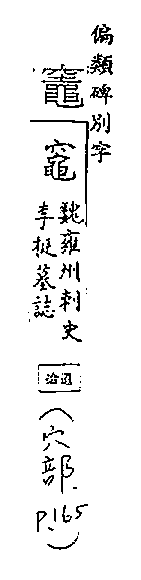 偏類碑別字
竈
魏雍州刺史
李挺墓誌
(穴部. P.165)